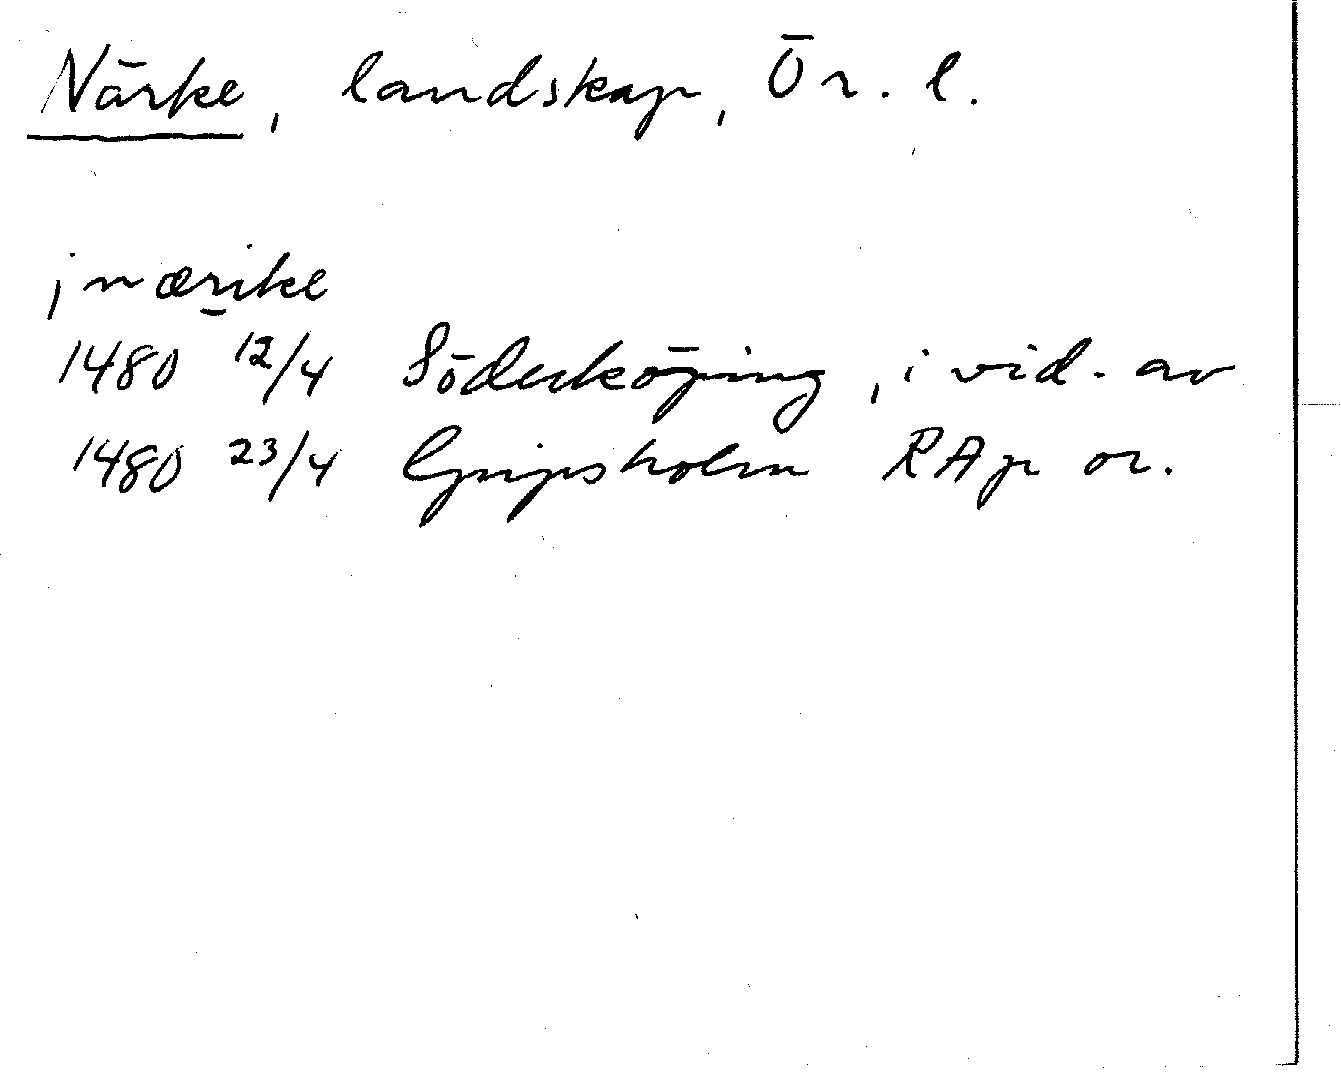 Närke, landskap, Ör. l.
j nærike
1480 12/4 Söderköping, i vid. av
1480 23/4 Gripsholm RAp or.